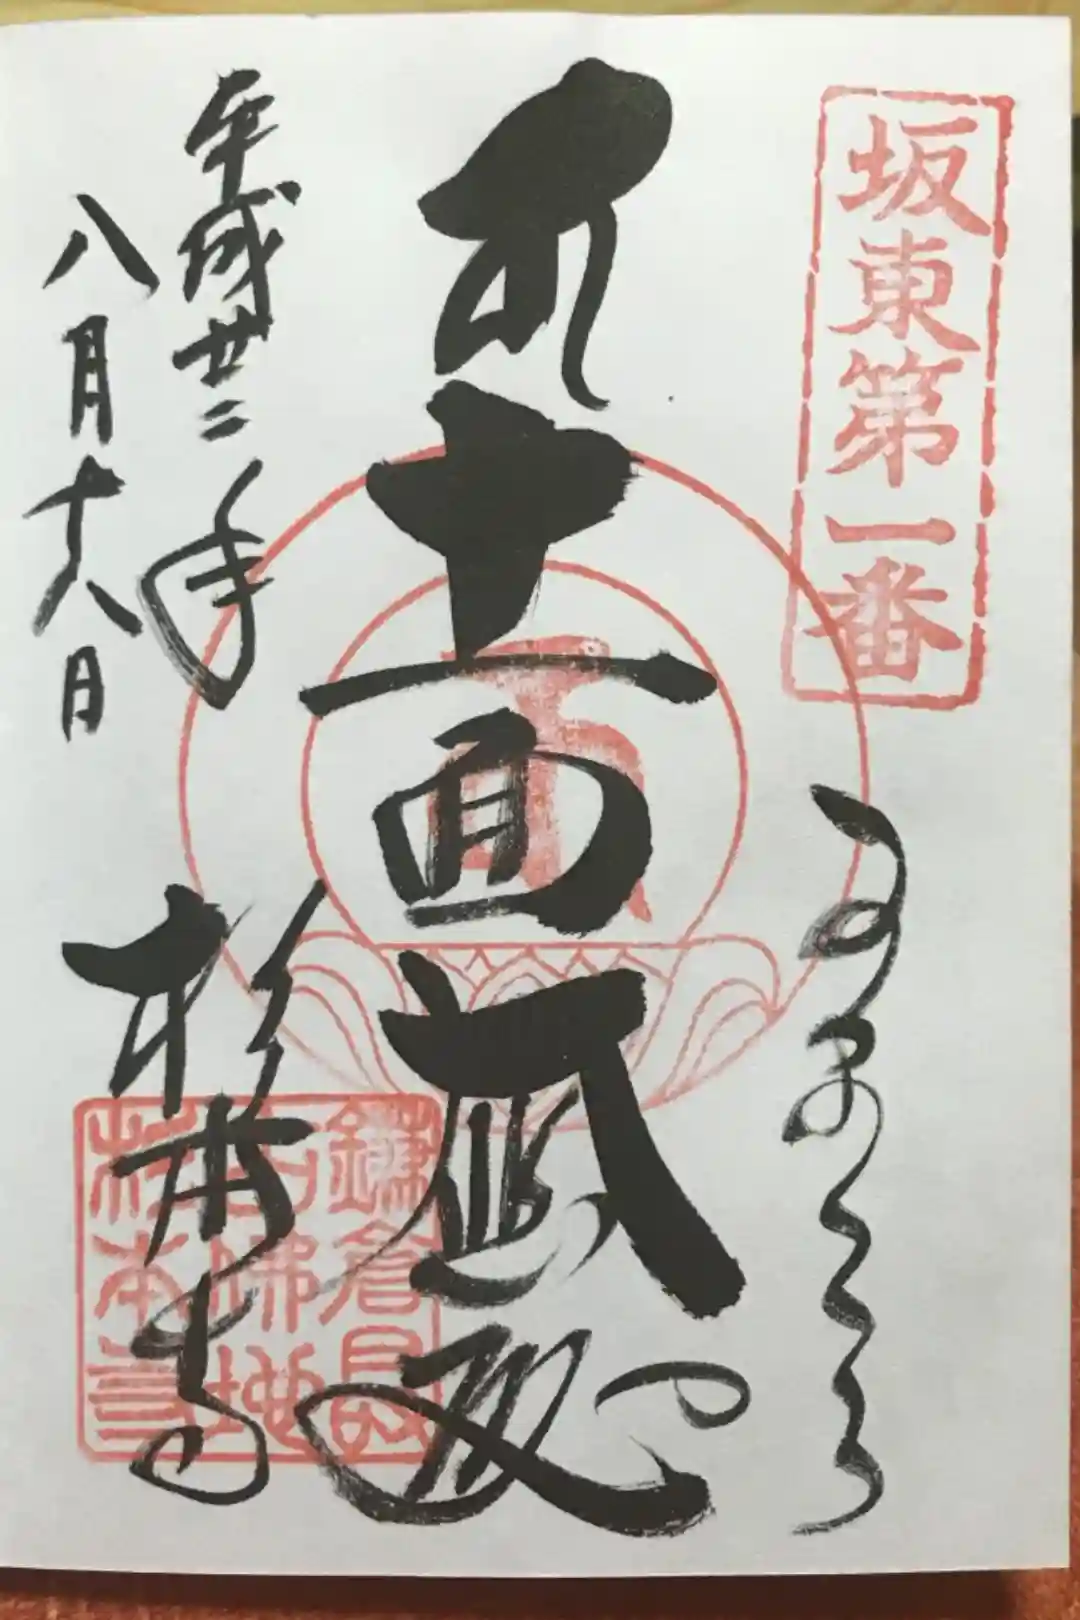 坂東第一番
十一面大悲殿
平成廿二年
八月十八日
杉本寺
鎌倉最
古佛地
杉本寺